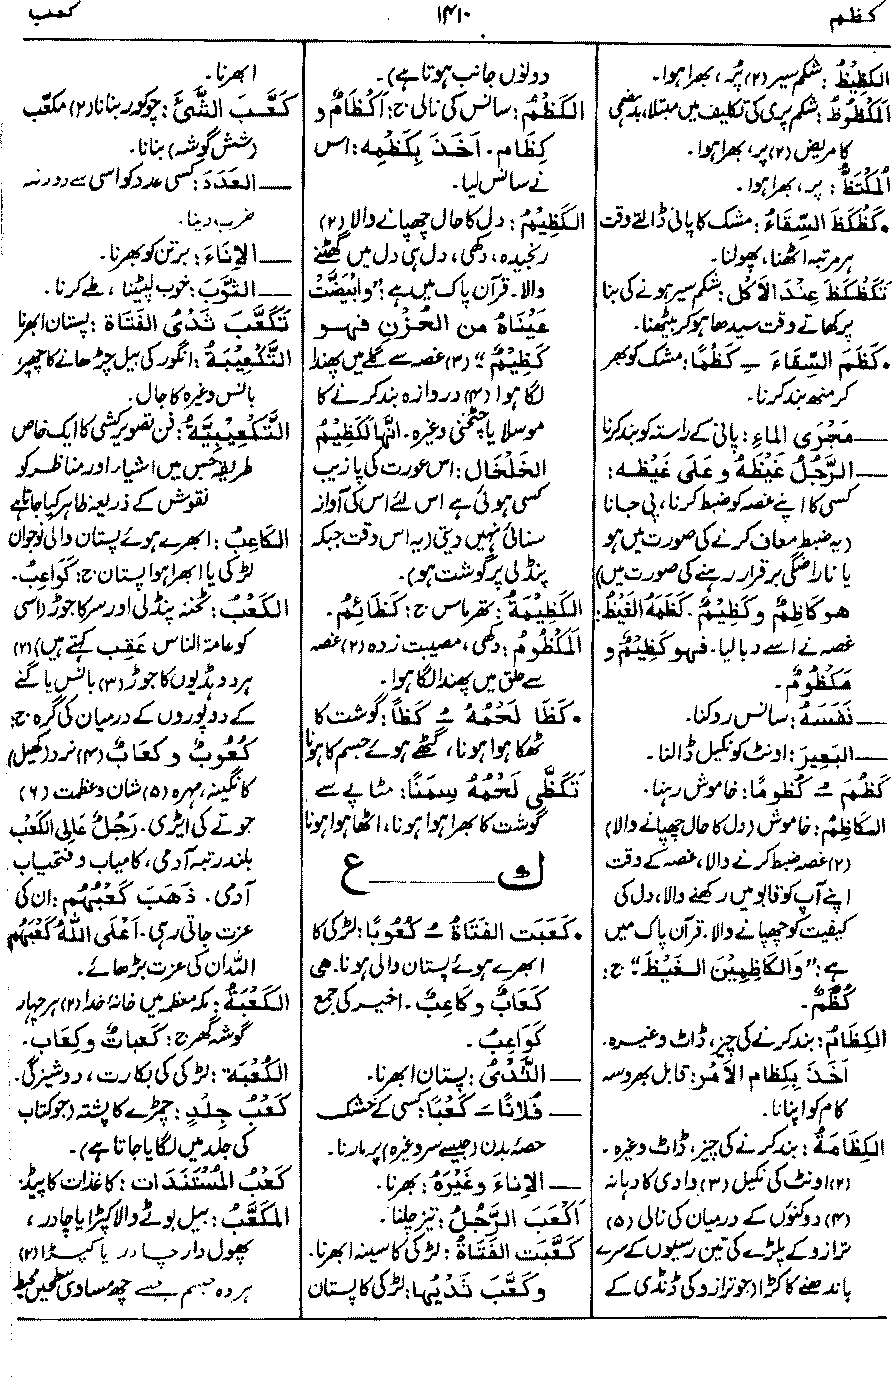 كظم
۱۴۱۰
كعب
الكَظِيظُ: شکم سیر (۲) پُر، بھرا ہوا۔
المَكْظُوظُ: شکم پری کی تکلیف میں مبتلا، بدہضمی
کا مریض (۲) پر، بھرا ہوا۔
المُكْتَظُّ: پر، بھرا ہوا۔
• كَظْكَظَ السِّقَاءُ: مشک کا پانی ڈالتے وقت
ہر مرتبہ اٹھنا، پھولنا۔
تَكَظْكَظَ عِنْدَ الأَكْل: شکم سیر ہونے کی بنا
پر کھاتے وقت سیدھا ہو کر بیٹھنا۔
• كَظَمَ السِّقَاءَ ــِ كَظْمًا: مشک کو بھر
کر منھ بند کرنا۔
ــــ مَجْرَى الماءِ: پانی کے راستہ کو بند کرنا
ــــ الرَّجُلُ غَيْظَهُ وعَلَى غَيْظِه:
کسی کا اپنے غصہ کو ضبط کرنا، پی جانا
(یہ ضبط معاف کرنے کی صورت میں ہو
یا ناراضگی برقرار رہنے کی صورت میں)
هو كَاظِمٌ وكَظِيمٌ۔ كَظَمَهُ الغَيْظُ:
غصہ نے اسے دبا لیا۔ فهو كَظِيمٌ و
مَكْظُومٌ۔
ــــ نَفَسَهُ: سانس روکنا۔
ــــ البَعِيرَ: اونٹ کو نکیل ڈالنا۔
كَظَمَ ــُ كُظُومًا: خاموش رہنا۔
الكَاظِمُ: خاموش (دل کا حال چھپانے والا)
(۲) غصہ ضبط کرنے والا، غصہ کے وقت
اپنے آپ کو قابو میں رکھنے والا، دل کی
کیفیت کو چھپانے والا۔ قرآن پاک میں
ہے: "والكَاظِمِيْنَ الغَيْظَ" ج:
كُظَّمٌ۔
الكِظَامُ: بند کرنے کی چیز، ڈاٹ وغیرہ۔
أَخَذَ بِكِظَامِ الأَمْر: قابل بھروسہ
کام کو اپنانا۔
الكِظَامَةُ: بند کرنے کی چیز، ڈاٹ وغیرہ۔
(۲) اونٹ کی نکیل (۳) وادی کا دہانہ
(۴) دو کنوں کے درمیان کی نالی (۵)
ترازو کے پلڑے کی تین رسیوں کے سرے
باندھنے کا کڑا (جو ترازو کی ڈنڈی کے
دونوں جانب ہوتا ہے)۔
الكَظَمُ: سانس کی نالی ج: أَكْظَامٌ و
كِظَام۔ أَخَذَ بِكَظَمِه: اس
نے سانس لیا۔
الكَظِيْمُ: دل کا حال چھپانے والا (۲)
رنجیدہ، دکھی، دل ہی دل میں گھٹنے
والا۔ قرآن پاک میں ہے: "وابْيَضَّتْ
عَيْنَاهُ من الحُزْنِ فهو
كَظِيْمٌ" (۳) غصہ سے گلے میں پھندا
لگا ہوا (۴) دروازہ بند کرنے کا
موسلا یا چٹخنی وغیرہ۔ انَّها لَكَظِيْمُ
الخَلْخَال: اس عورت کی پازیب
کسی ہوئی ہے اس لئے اس کی آواز
سنائی نہیں دیتی (یہ اس وقت جبکہ
پنڈلی پر گوشت ہو)۔
الكَظِيْمَةُ: تھرماس ج: كَظَائِمُ۔
المَكْظُومُ: دکھی، مصیبت زدہ (۲) غصہ
سے حلق میں پھندا لگا ہوا۔
• كَظَا لَحْمُهُ ــُ كَظًا: گوشت کا
ٹھکا ہوا ہونا، گٹھے ہوئے جسم کا ہونا
تَكَظَّى لَحْمُهُ سِمَنًا: مٹاپے سے
گوشت کا بھرا ہوا ہونا، اٹھا ہوا ہونا
ك ــــــــ ع
• كَعَبَت الفَتَاةُ ــُ كُعُوبًا: لڑکی کا
ابھرے ہوئے پستان والی ہونا۔ هي
كَعَابٌ وكَاعِبٌ۔ اخیر کی جمع
كَوَاعِبُ۔
ــــ الثَّدْىُ: پستان ابھرنا۔
ــــ فُلَانًا ــَ كَعْبًا: کسی کے خشک
حصۂ بدن (جیسے سر وغیرہ) پر مارنا۔
ــــ الإناءَ وغَيْرَهُ: بھرنا۔
أَكْعَبَ الرَّجُلُ: تیز چلنا۔
كَعَّبَت الفَتَاةُ: لڑکی کا سینہ ابھرنا۔
وكَعَّبَ ثَدْيُها: لڑکی کا پستان
ابھرنا۔
كَعَّبَ الشَّيْءَ: چوکور بنانا (۲) مکعّب
(شش گوشہ) بنانا۔
ــــ العَدَدَ: کسی عدد کو اسی سے دو مرتبہ
ضرب دینا۔
ــــ الإناءَ: برتن کو بھرنا۔
ــــ الثَّوْبَ: خوب لپیٹنا، طے کرنا۔
تَكَعَّبَ ثَدْىُ الفَتَاة: پستان ابھرنا
التَّكْعِيْبَةُ: انگور کی بیل چڑھانے کا چھپر
بانس وغیرہ کا جال۔
التَّكْعِيْبِيَّةُ: فن تصویر کشی کا ایک خاص
طریقہ جس میں اشیاء اور مناظر کو
نقوش کے ذریعہ ظاہر کیا جاتا ہے
الكَاعِبُ: ابھرے ہوئے پستان والی نوجوان
لڑکی یا ابھرا ہوا پستان ج: كَوَاعِبُ۔
الكَعْبُ: ٹخنہ پنڈلی اور سر کا جوڑ (اسی
کو عامۃ الناس عَقِب کہتے ہیں) (۲)
ہر دو ہڈیوں کا جوڑ (۳) بانس یا گنے
کے دو پوروں کے درمیان کی گرہ ج:
كُعُوبٌ وكِعَابٌ (۴) نرد (کھیل)
کا نگینہ، مہرہ (۵) شان و عظمت (۶)
جوتے کی ایڑی۔ رَجُلٌ عَالِي الكَعْب
بلند رتبہ آدمی، کامیاب و فتحیاب
آدمی۔ ذَهَبَ كَعْبُهُم: ان کی
عزت جاتی رہی۔ أَعْلَى اللّٰهُ كَعْبَهُم
اللہ ان کی عزت بڑھائے۔
الكَعْبَةُ: مکہ معظمہ میں خانۂ خدا (۲) ہر چہار
گوشہ گھر ج: كَعَباتٌ وكِعَاب۔
الكُعْبَة: لڑکی کی بکارت، دوشیزگی۔
كَعْبُ جِلْدٍ: چمڑے کا پشتہ (جو کتاب
کی جلد میں لگایا جاتا ہے)۔
كَعْبُ المُسْتَنَدَات: کاغذات کا پیڈ۔
المُكَعَّبُ: بیل بوٹے والا کپڑا یا چادر،
پھول دار چادر یا کپڑا (۲)
ہر وہ جسم جسے چھ مساوی سطحیں محیط